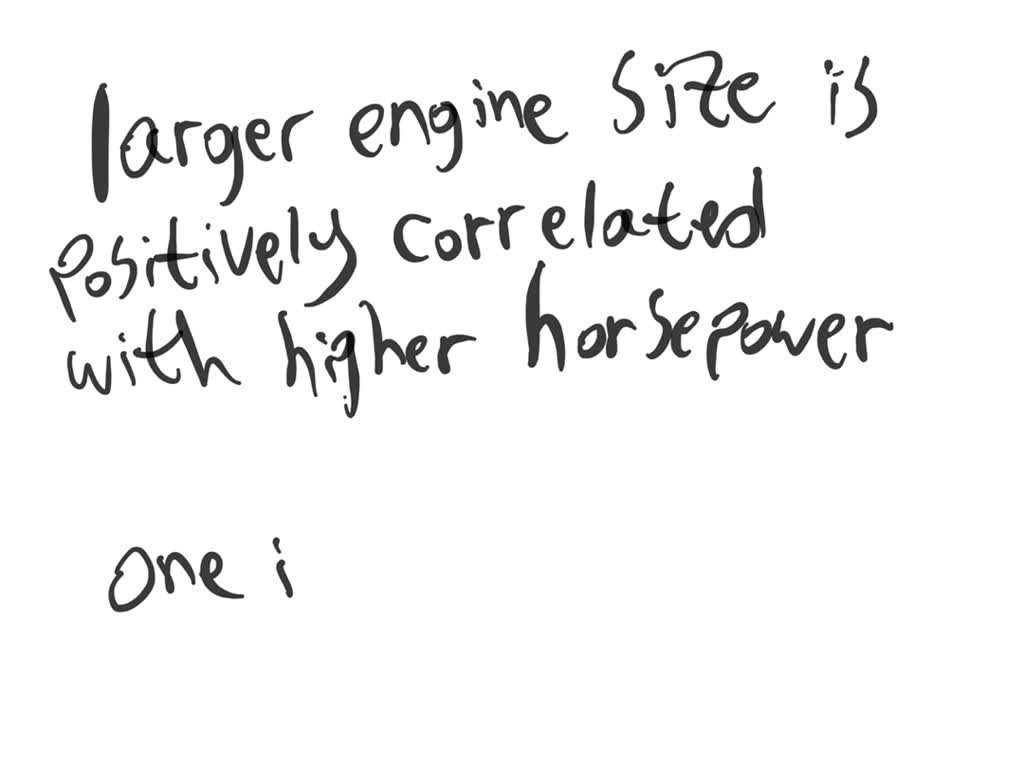 larger engine size is
positively correlated
with higher horsepower
one i